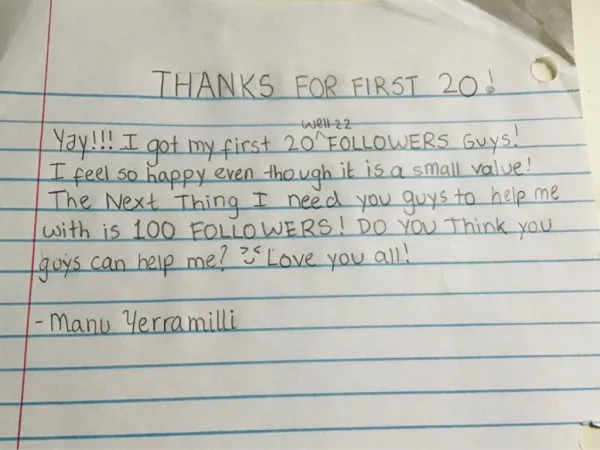 THANKS FOR FIRST 20!
well 22
Yay!!! I got my first 20^FOLLOWERS Guys!
I feel so happy even though it is a small value!
The Next Thing I need you guys to help me
with is 100 FOLLOWERS! DO YOU Think you
guys can help me? Love you all!
-Manu Yerramilli